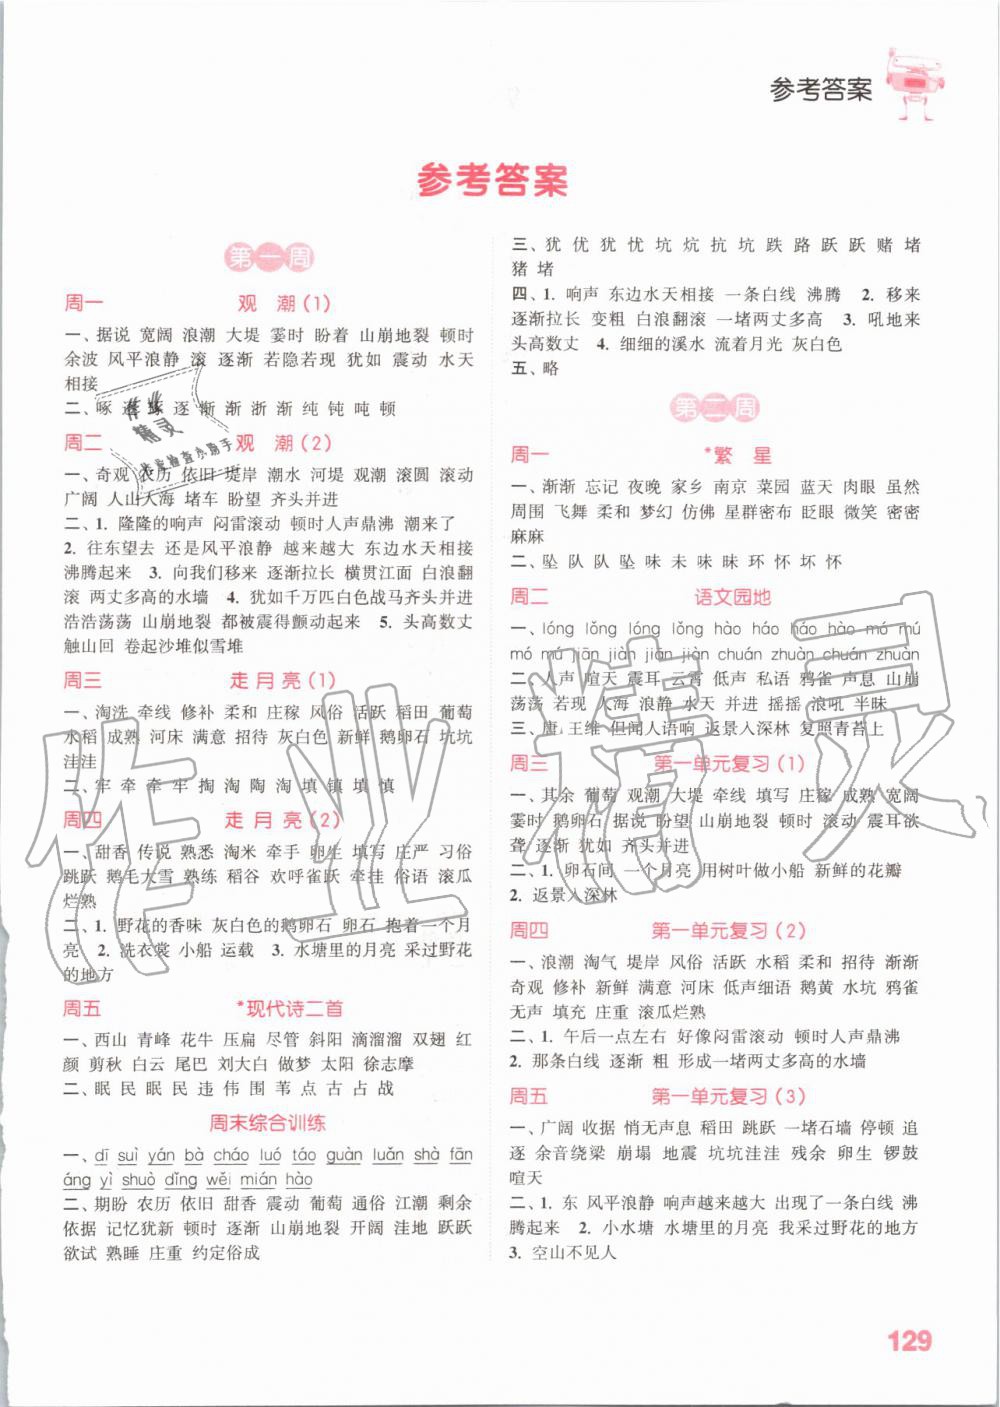 参考答案
参考答案
第一周
周一 观 潮(1)
一、据说 宽阔 浪潮 大堤 霎时 盼着 山崩地裂 顿时
余波 风平浪静 滚 逐渐 若隐若现 犹如 震动 水天
相接
二、啄 逐 琢 逐 惭 渐 浙 渐 纯 钝 吨 顿
周二 观 潮(2)
一、奇观 农历 依旧 堤岸 潮水 河堤 观潮 滚圆 滚动
广阔 人山人海 堵车 盼望 齐头并进
二、1. 隆隆的响声 闷雷滚动 顿时人声鼎沸 潮来了
2. 往东望去 还是风平浪静 越来越大 东边水天相接
沸腾起来 3. 向我们移来 逐渐拉长 横贯江面 白浪翻
滚 两丈多高的水墙 4. 犹如千万匹白色战马齐头并进
浩浩荡荡 山崩地裂 都被震得颤动起来 5. 头高数丈
触山回 卷起沙堆似雪堆
周三 走 月 亮(1)
一、淘洗 牵线 修补 柔和 庄稼 风俗 活跃 稻田 葡萄
水稻 成熟 河床 满意 招待 灰白色 新鲜 鹅卵石 坑坑
洼洼
二、牢 牵 牵 牢 淘 陶 陶 淘 填 镇 填 慎
周四 走 月 亮(2)
一、甜香 传说 熟悉 淘米 牵手 卵生 填写 庄严 习俗
跳跃 鹅毛大雪 熟练 稻谷 欢呼雀跃 牵挂 俗语 滚瓜
烂熟
二、1. 野花的香味 灰白色的鹅卵石 卵石 抱着一个月
亮 2. 洗衣裳 小船 运载 3. 水塘里的月亮 采过野花
的地方
周五 *现代诗二首
一、西山 青峰 花牛 压扁 尽管 斜阳 滴溜溜 双翅 红
颜 剪秋 白云 尾巴 刘大白 做梦 太阳 徐志摩
二、眠 民 眠 民 违 伟 围 苇 点 古 占 战
周末综合训练
一、dī suì yán bà cháo luó táo guàn luǎn shà fān
áng yì shuò dǐng wěi mián hào
二、期盼 农历 依旧 甜香 震动 葡萄 通俗 江潮 剩余
依据 记忆犹新 顿时 逐渐 山崩地裂 开阔 洼地 跃跃
欲试 熟睡 庄重 约定俗成
三、犹 优 犹 忧 坑 炕 抗 坑 跌 路 跃 跃 赌 堵
猪 堵
四、1. 响声 东边水天相接 一条白线 沸腾 2. 移来
逐渐拉长 变粗 白浪翻滚 一堵两丈多高 3. 吼地来
头高数丈 4. 细细的溪水 流着月光 灰白色
五、略
第二周
周一 *繁 星
一、渐渐 忘记 夜晚 家乡 南京 菜园 蓝天 肉眼 虽然
周围 飞舞 柔和 梦幻 仿佛 星群密布 眨眼 微笑 密密
麻麻
二、坠 队 队 坠 味 未 味 昧 环 怀 坏 怀
周二 语文园地
一、lóng lǒng lóng lǒng hào háo háo hào mó mú
mó mú jiān jiàn jiān jiàn chuán zhuàn chuán zhuàn
二、人声 喧天 震耳 云霄 低声 私语 鸦雀 声息 山崩
荡荡 若现 人海 浪静 水天 并进 摇摇 浪吼 半昧
三、唐 王维 但闻人语响 返景入深林 复照青苔上
周三 第一单元复习(1)
一、其余 葡萄 观潮 大堤 牵线 填写 庄稼 成熟 宽阔
霎时 鹅卵石 据说 盼望 山崩地裂 顿时 滚动 震耳欲
聋 逐渐 犹如 齐头并进
二、1. 卵石间 一个月亮 用树叶做小船 新鲜的花瓣
2. 返景入深林
周四 第一单元复习(2)
一、浪潮 淘气 堤岸 风俗 活跃 水稻 柔和 招待 渐渐
奇观 修补 新鲜 满意 河床 低声细语 鹅黄 水坑 鸦雀
无声 填充 庄重 滚瓜烂熟
二、1. 午后一点左右 好像闷雷滚动 顿时人声鼎沸
2. 那条白线 逐渐 粗 形成一堵两丈多高的水墙
周五 第一单元复习(3)
一、广阔 收据 悄无声息 稻田 跳跃 一堵石墙 停顿 追
逐 余音绕梁 崩塌 地震 坑坑洼洼 残余 卵生 锣鼓
喧天
二、1. 东 风平浪静 响声越来越大 出现了一条白线 沸
腾起来 2. 小水塘 水塘里的月亮 我采过野花的地方
3. 空山不见人
129
作业精灵
作业
精灵
作业检查小助手